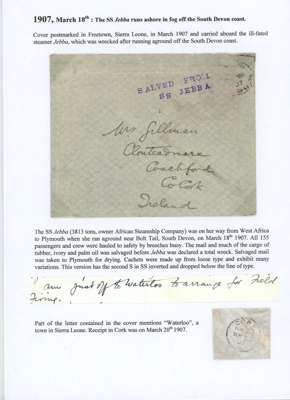 1907, March 18th : The SS Jebba runs ashore in fog off the South Devon coast.
Cover postmarked in Freetown, Sierra Leone, in March 1907 and carried aboard the ill-fated
steamer Jebba, which was wrecked after running aground off the South Devon coast.
SALVED FROM
SS JEBBA
Mrs Gillman
Clonteadmore
Coachford
Co Cork
Ireland
The SS Jebba (3813 tons, owner African Steamship Company) was on her way from West Africa
to Plymouth when she ran aground near Bolt Tail, South Devon, on March 18th 1907. All 155
passengers and crew were hauled to safety by breeches buoy. The mail and much of the cargo of
rubber, ivory and palm oil was salved before Jebba was declared a total wreck. Salvaged mail
was taken to Plymouth for drying. Cachets were made up from loose type and exhibit many
variations. This version has the second S in SS inverted and dropped below the line of type.
I am just off to Waterloo to arrange for Field
Firing.
Part of the letter contained in the cover mentions "Waterloo", a
town in Sierra Leone. Receipt in Cork was on March 20th 1907.
CORK